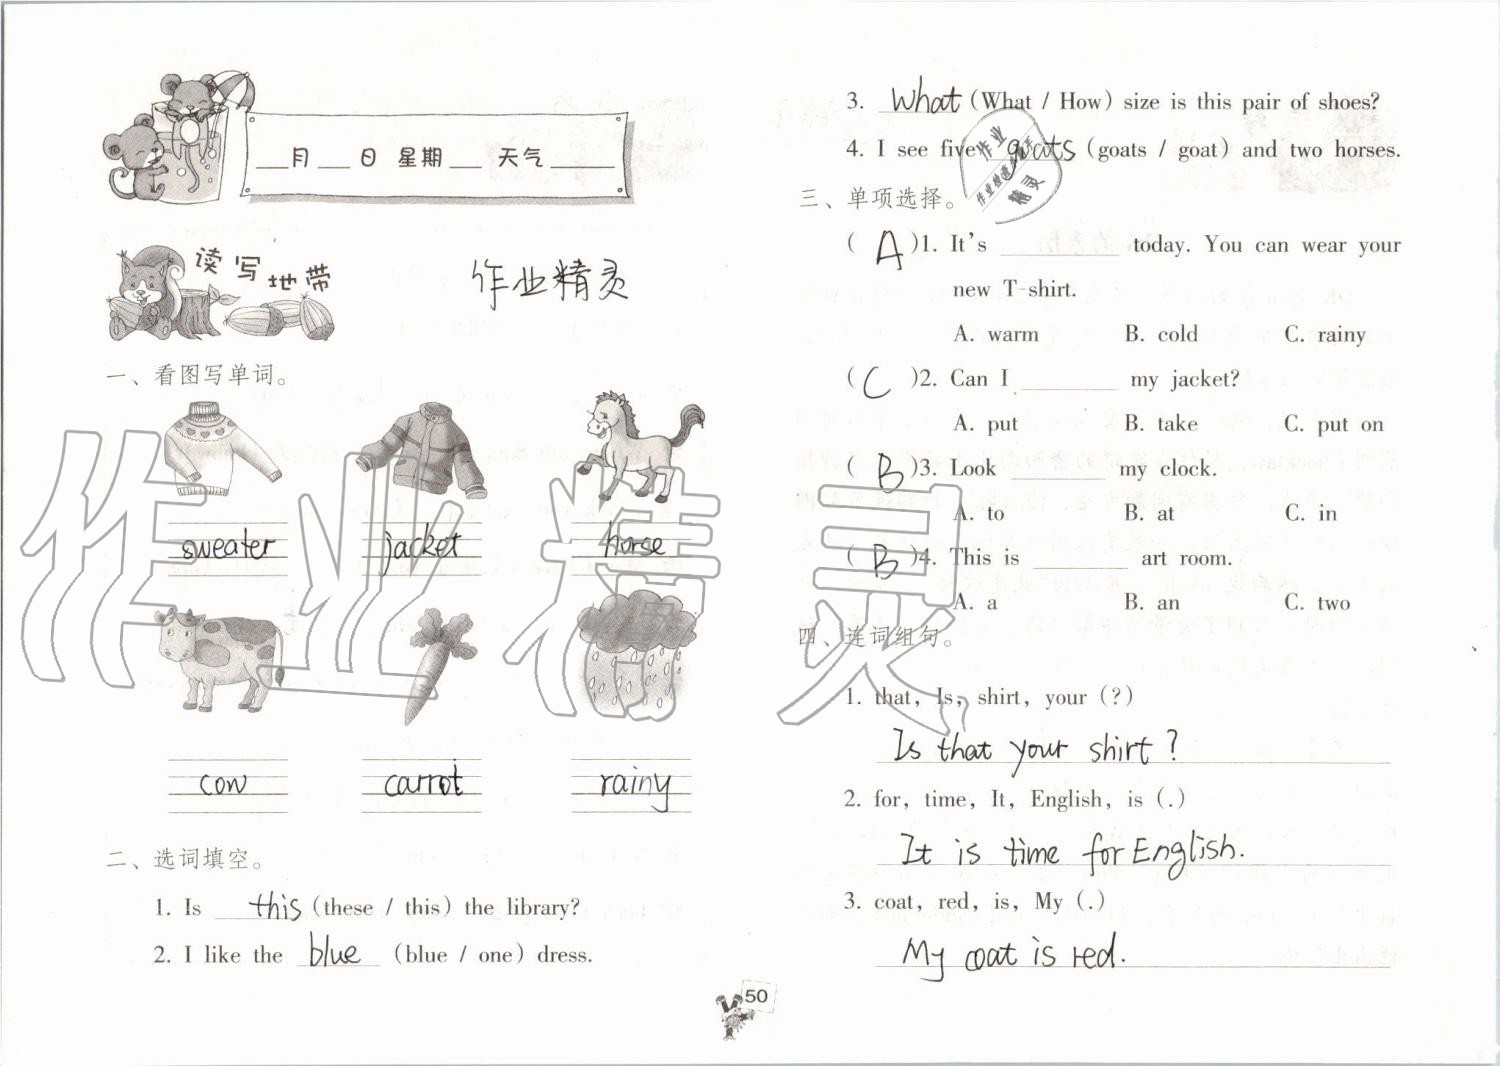 ___月___日 星期___ 天气______
读写地带
作业精灵
一、看图写单词。
sweater jacket horse
cow carrot rainy
二、选词填空。
1. Is this (these / this) the library?
2. I like the blue (blue / one) dress.
50
3. What (What / How) size is this pair of shoes?
4. I see five goats (goats / goat) and two horses.
作业
作业快速
精灵
三、单项选择。
( A )1. It's ______ today. You can wear your
new T-shirt.
A. warm B. cold C. rainy
( C )2. Can I ______ my jacket?
A. put B. take C. put on
( B )3. Look ______ my clock.
A. to B. at C. in
( B )4. This is ______ art room.
A. a B. an C. two
四、连词组句。
1. that, Is, shirt, your (?)
Is that your shirt ?
2. for, time, It, English, is (.)
It is time for English.
3. coat, red, is, My (.)
My coat is red.
作业精灵